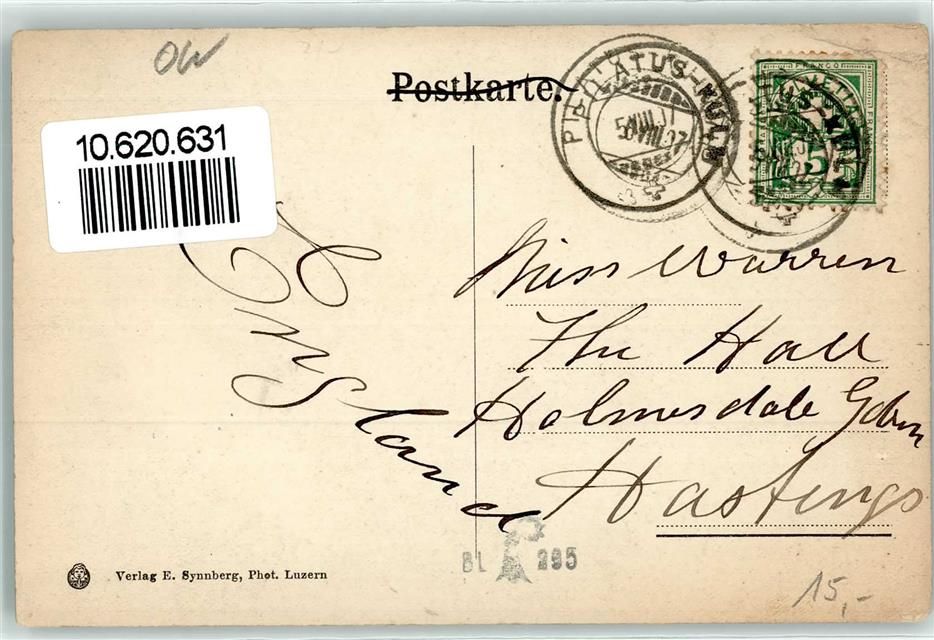 OW
Postkarte.
10.620.631
PILATUS-KULM
FRANCO
HELVETIA
5
Miss Warren
The Hall
Holmesdale Gdns
Hastings
BL 295
Verlag E. Synnberg, Phot. Luzern
15,-